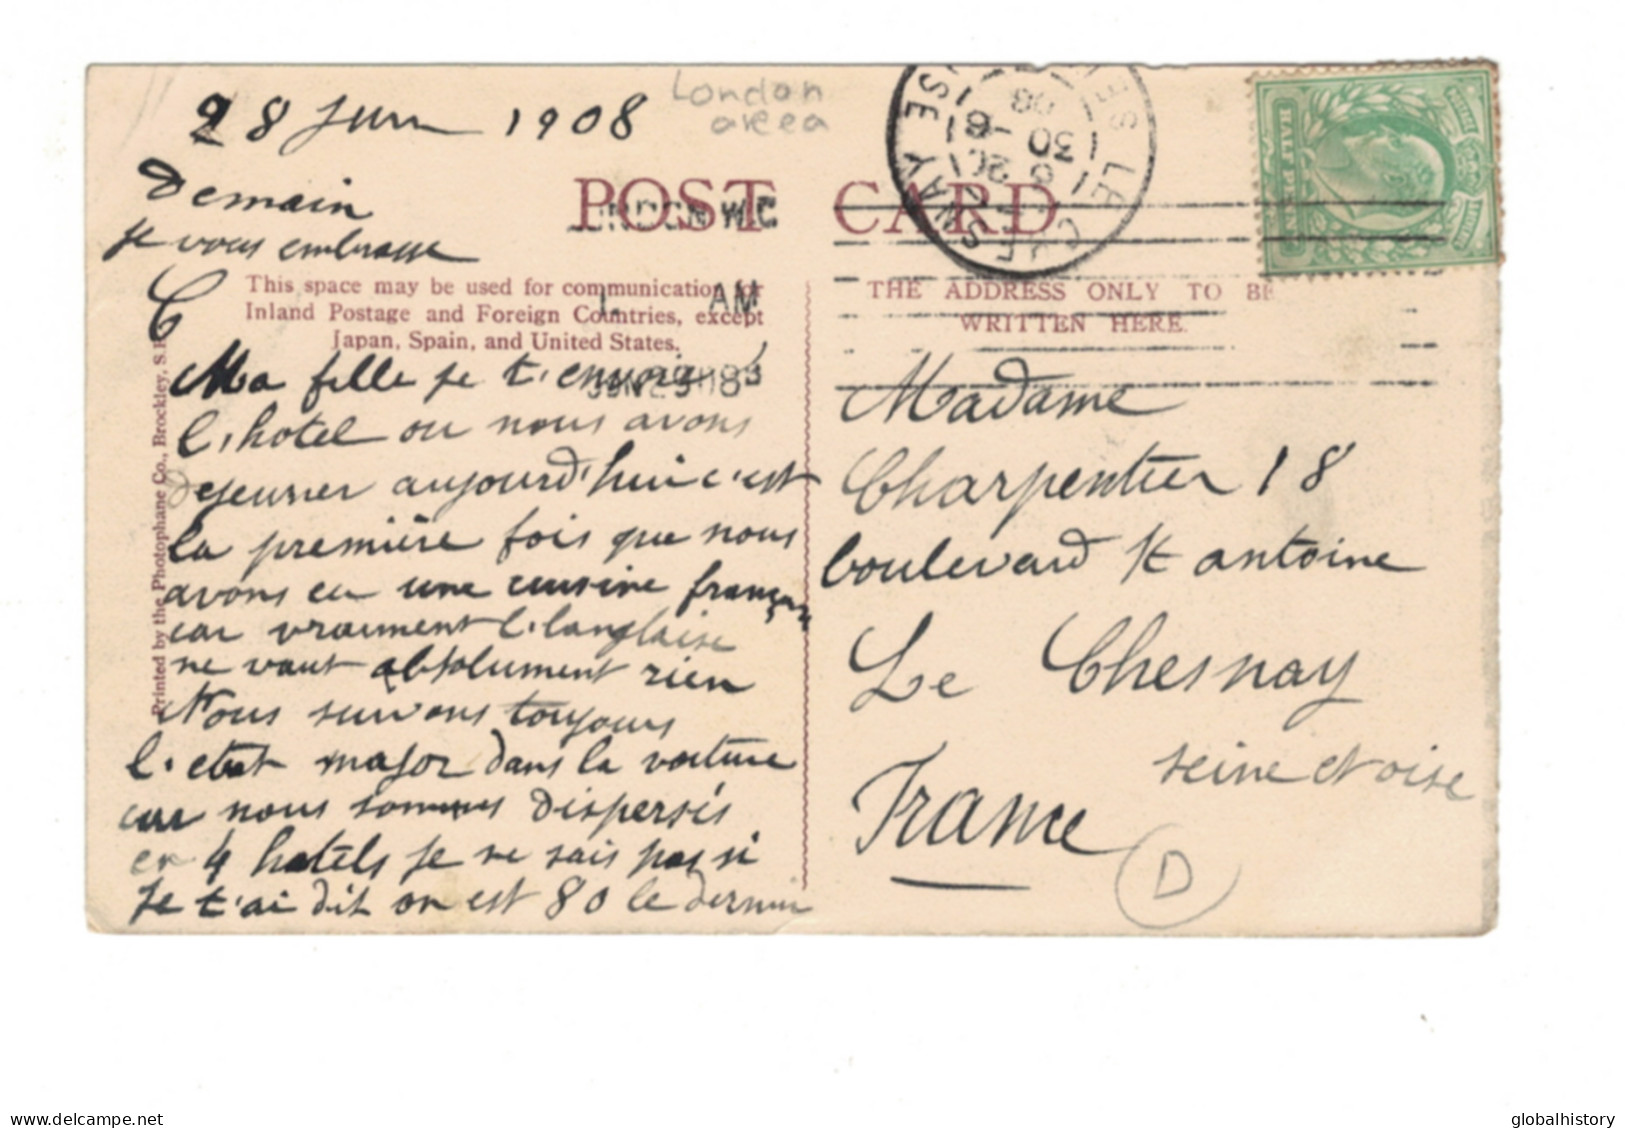 28 Juin 1908
London
area
Demain
je vous embrasse
C
POST CARD
LONDON W.C
AM
JUN 29 08
LE CHESNAY
This space may be used for communication for
Inland Postage and Foreign Countries, except
Japan, Spain, and United States.
THE ADDRESS ONLY TO BE
WRITTEN HERE.
Printed by the Photophane Co., Brockley, S.E.
Ma fille je t'envoie
l'hotel ou nous avons
dejeuner aujourd'hui c'est
la première fois que nous
avons eu une cuisine
car vraiment l'anglaise
ne vaut absolument rien
Nous suivons toujours
l'etat major dans la voiture
car nous sommes dispersés
en 4 hotels je ne sais pas si
je t'ai dit on est 80 le dernier
Madame
Charpentier 18
boulevard St antoine
Le Chesnay
seine et oise
France
D
HALF PENNY
delcampe.net
globalhistory